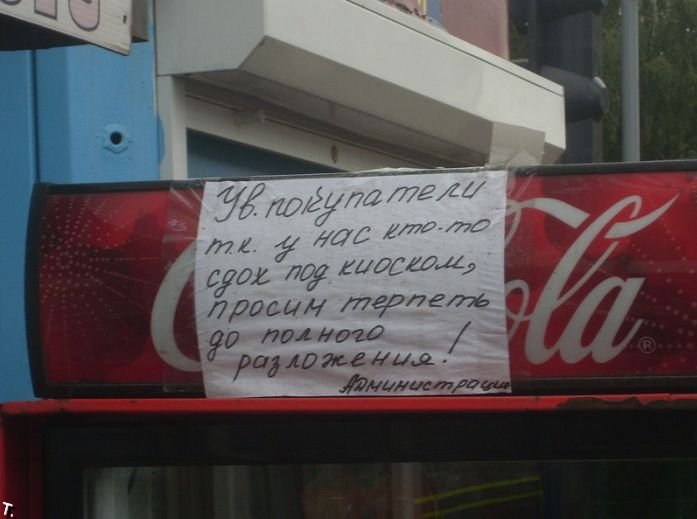 Ув. покупатели
т.к. у нас кто-то
сдох под киоском,
просим терпеть
до полного
разложения!
Администрация
Cola®
т.